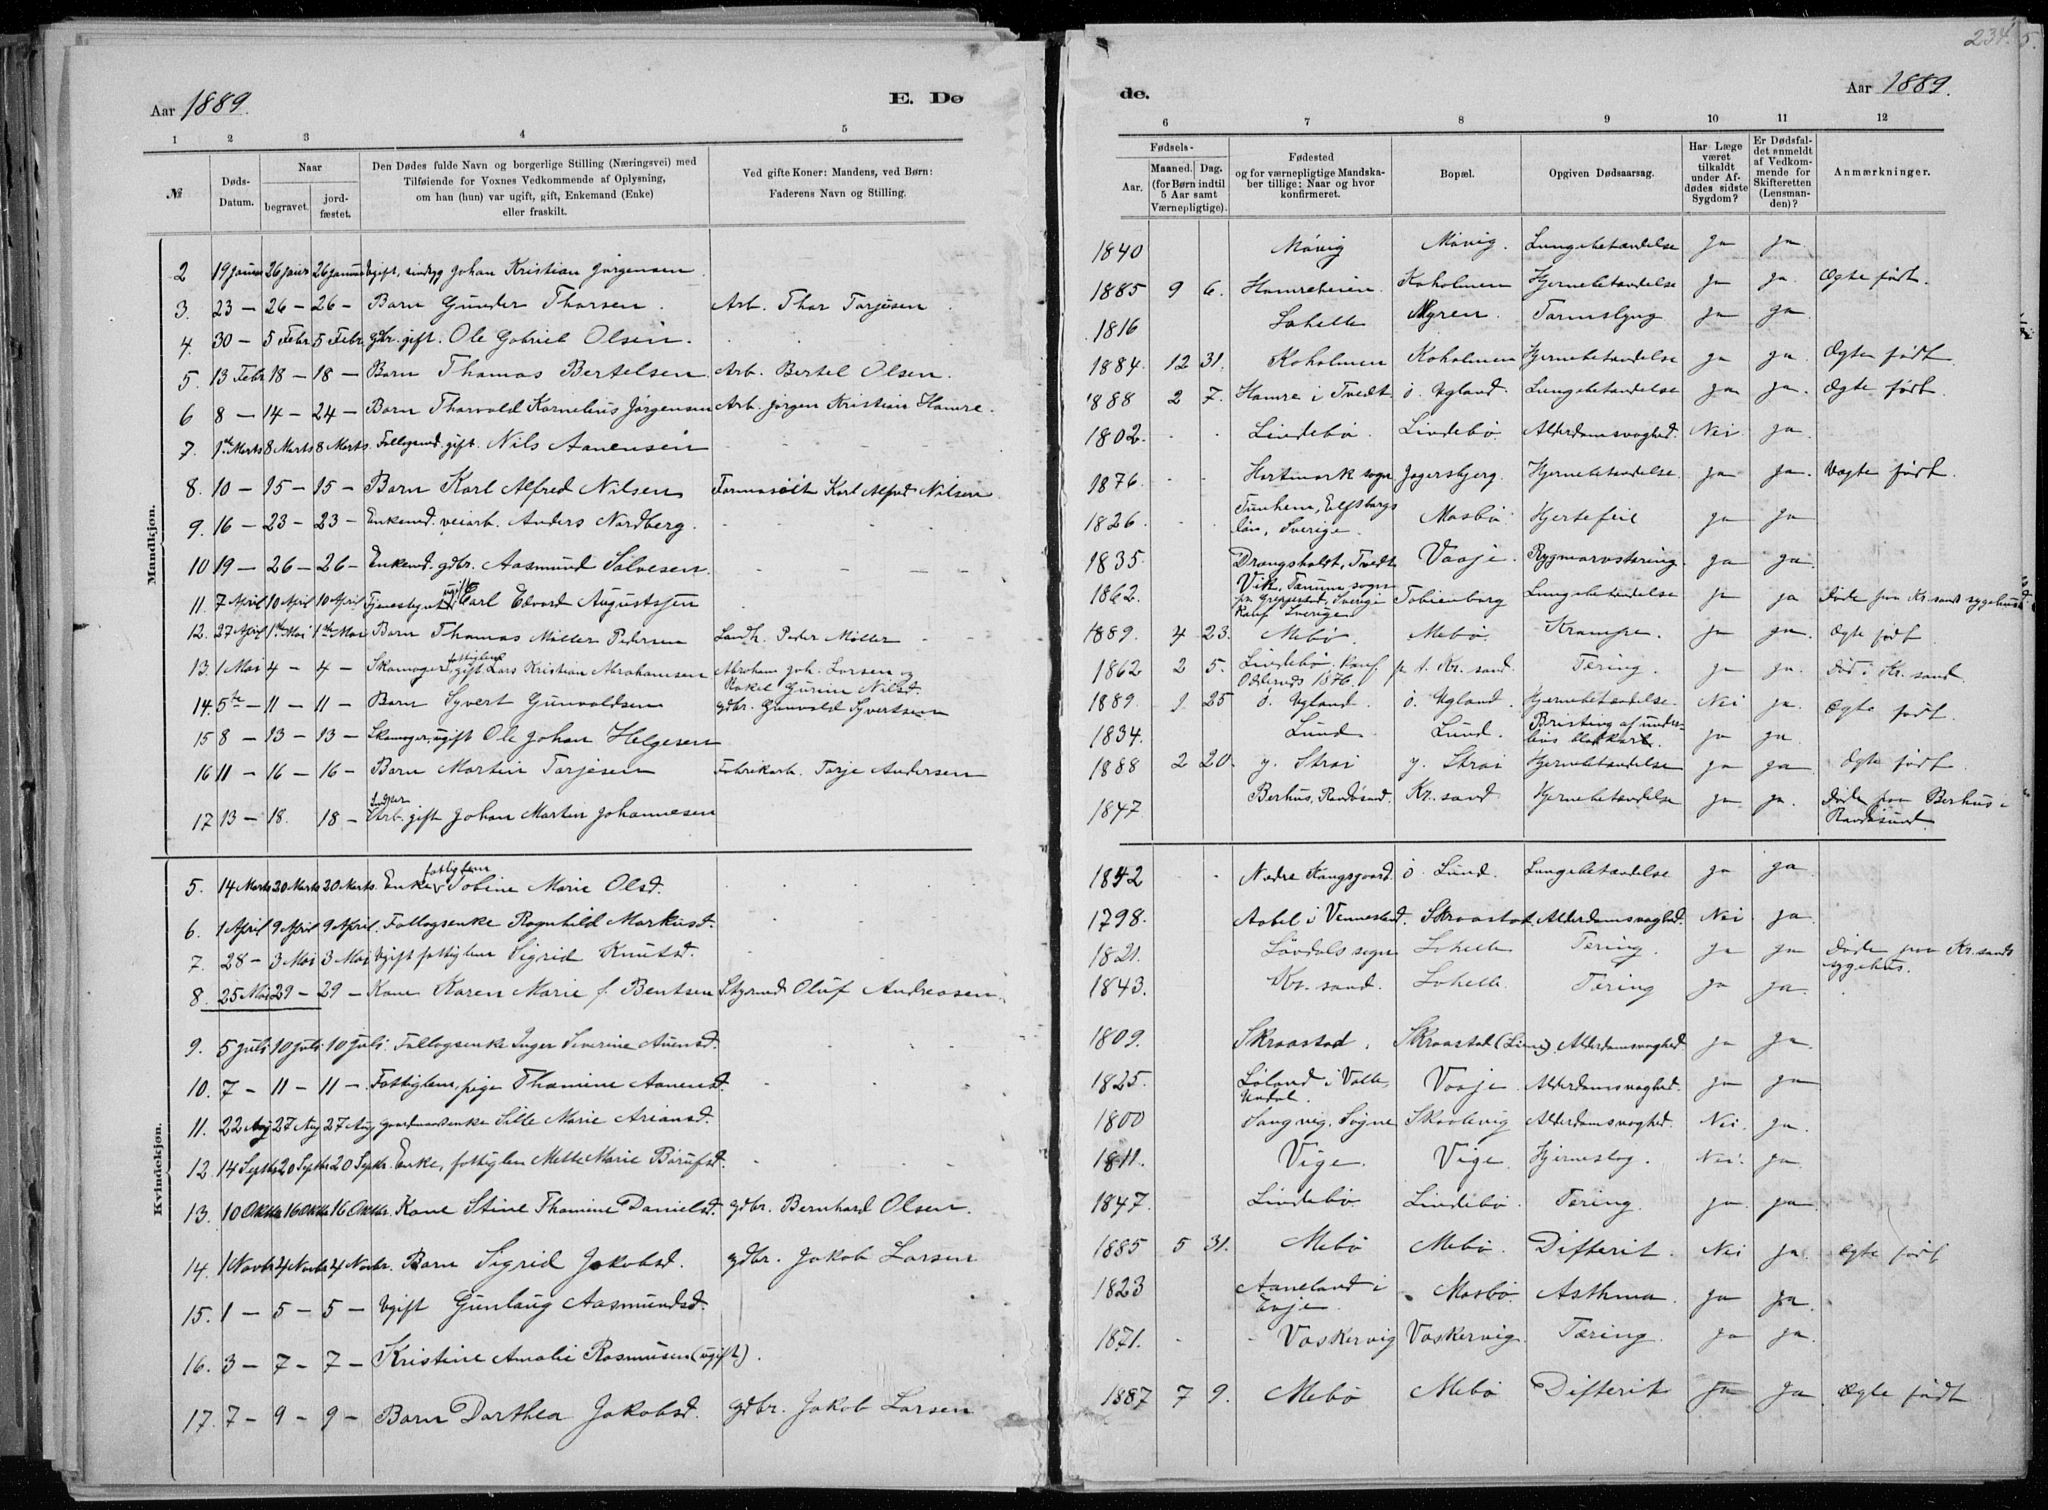 234. 5.
Aar 1889. E. Dø de. Aar 1889.
1 2 3 4 5 6 7 8 9 10 11 12
№
Døds-Datum.
Naar
begravet. jord-fæstet.
Den Dødes fulde Navn og borgerlige Stilling (Næringsvei) med
Tilføiende for Voxnes Vedkommende af Oplysning,
om han (hun) var ugift, gift, Enkemand (Enke)
eller fraskilt.
Ved gifte Koner: Mandens, ved Børn:
Faderens Navn og Stilling.
Fødsels-
Aar. Maaned. Dag.
(for Børn indtil
5 Aar samt
Værnepligtige).
Fødested
og for værnepligtige Mandska-
ber tillige: Naar og hvor
konfirmeret.
Bopæl.
Opgiven Dødsaarsag.
Har Læge
været
tilkaldt
under Af-
dødes sidste
Sygdom?
Er Dødsfal-
det anmeldt
af Vedkom-
mende for
Skifteretten
(Lensman-
den)?
Anmærkninger.
Mandkjøn.
2 19 Januar 26 Januar 26 Januar Ugift, sindsyg Johan Kristian Jørgensen 1840 Møvig Møvig. Lungebetændelse ja ja
3. 23 – 26 – 26 – Barn Gunder Thorsen. Arb. Thor Tarjesen 1885 9 6. Hamreheien. Koholmen Hjernebetændelse ja ja. Ægte født.
4. 30 – 5 Febr 5 Febr gdbr. gift. Ole Gabriel Olsen. 1816 Lohelle Myren. Tarmslyng ja ja
5. 13 Febr 18 – 18 – Barn Thomas Bertelsen Arb. Bertel Olsen. 1884. 12 31. Koholmen Koholmen Hjernebetændelse ja ja. Ægte født.
6 8 – 14 – 24 – Barn Thorvald Kornelius Jørgensen Arb. Jørgen Kristian Hamre. 1888 2 7. Hamre i Tvedt. ö. Ugland. Lungebetændelse ja ja. Ægte født.
7. 1ste Marts 8 Marts 8 Marts. Follogsmd. gift. Nils Aanensen 1802. Lindebø. Lindebø. Alderdomsvaghed. Nei ja.
8. 10 – 15 – 15 – Barn Karl Alfred Nilsen Karl Alfred Nilsen 1876. Hartmark sogn Jegersbjerg. Hjernebetændelse. ja ja. Uægte født.
9. 16 – 23 – 23 – Enkemd. veiarb. Anders Nordberg. 1826 Tunhem, Elfsborgs län, Sverige. Mosbø Hjertefeil ja ja
10 19 – 26 – 26 – Enkemd. gdbr. Aasmund Salvesen. 1835. Drangsholdt, Tvedt Vaaje. Rygmarvstæring. ja ja.
11. 7 April 10 April 10 April Tjenestegut ugift Carl Edvard Augustsen 1862. Vik, Tanum sogn pr. Greppestad, Sverige Konf. Sverige Tobienborg Lungebetændelse ja ja Døde paa Kr. sands sygehus
12. 27 April 1ste Mai 1ste Mai Barn Thomas Møller Pedersen Landh. Peder Møller 1889. 4 23. Mebø. Mebø. Krampe. ja ja. Ægte født
13. 1 Mai 4 – 4 – Skomager, fattiglem gift Lars Kristian Abrahamsen Abraham Joh. Larsen og Rakel Gurine Nilsd. 1862 2 5. Lindebø. Konf. Oddernes 1876. p. t. Kr. sand. Tæring. ja ja. Død i Kr. sand.
14. 5te – 11 – 11 – Barn Syvert Gunvaldsen gdbr. Gunvald Syvertsen 1889. 9 25 ö. Ugland. ö. Ugland. Hjernebetændelse. Nei ja. Ægte født.
15 8 – 13 – 13 – Skomager, ugift Ole Johan Helgesen 1834. Lund. Lund. Bristing af underlivs blodkar. ja ja.
16 11 – 16 – 16 – Barn Martin Tarjesen Fabrikarb. Tarje Andersen 1888 2 20. y. Strai y. Strai Hjernebetændelse ja ja Ægte født.
17 13 – 18. 18 – Arb. gift Johan Martin Johannesen 1847. Berhus, Randøsund. Kr. sand Hjernebetændelse ja ja. Døde paa Berhus i Randøsund.
Kvindekjøn.
5. 14 Marts 20 Marts 20 Marts. Enke, fattiglem Tobine Marie Olsd. 1842 Nedre Kongsgaard. ö. Lund. Lungebetændelse ja ja
6. 1 April 9 April 9 April. Follogsenke Ragnhild Markusd. 1798. Aabel i Vennesland. Skraastad. Alderdomsvaghed. Nei ja.
7. 28 – 3 Mai 3 Mai Ugift fattiglem Sigrid Knutsd. 1821. Løvdals sogn Lohelle Tæring. ja ja Døde paa Kr. sands sygehus.
8. 25 Mai 29 – 29 – Kone Karen Marie f. Bentsen Styrmd Oluf Andreasen. 1843. Kr. sand. Lohelle. Tæring ja ja.
9. 5 juli 10 juli 10 juli. Follogsenke Inger Severine Auensd. 1809. Skraastad. Skraastad (Lien). Alderdomsvaghed ja ja.
10. 7 – 11 – 11 – Fattiglem, pige Thomine Aanensd. 1825. Løland i Valle, Undal. Vaaje Alderdomsvaghed. ja ja
11. 22 Aug 27 Aug 27 Aug gaardmandsenke Sille Marie Ariansd. 1800 Langvig, Søgne Skaalevig Alderdomsvaghed. Nei. ja.
12 14 Septbr 20 Septbr 20 Septbr. Enke, fattiglem Mette Marie Børufsd. 1811. Vige. Vige. Hjerneslag. Nei. ja.
13. 10 Oktbr 16 Oktbr 16 Oktbr. Kone Stine Thomine Danielsd. gdbr. Bernhard Olsen. 1847. Lindebø Lindebø. Tæring. ja ja
14. 1 Novbr 4 Novbr 4 Novbr. Barn Sigrid Jakobsd. gdbr. Jakob Larsen 1885 5 31. Mebø Mebø. Difterit. Nei ja. Ægte født
15. 1 – 5 – 5 – Ugift Gunlaug Aasmundsd. 1823 Aaneland i Evje. Mosbø. Asthma. ja ja.
16. 3 – 7 – 7 – Kristine Amalie Rasmusen (ugift). 1871. Voskervig Voskervig. Tæring. ja ja.
17. 7 – 9 – 9 – Barn Dorthea Jakobsd. gdbr. Jakob Larsen 1887 7 9. Mebø Mebø Difterit ja ja Ægte født